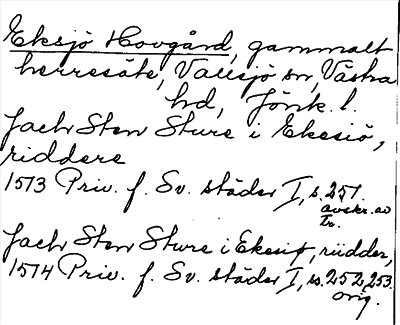 Eksjö Hovgård, gammalt
herresäte, Vallsjö sn, Västra
hd, Jönk. l.
Jach Sten Sture i Ekesiö,
riddere
1513 Priv. f. Sv. städer I, s. 251.
avskr. av
tr.
Jach Sten Sture i Ekesiø, riidder,
1514 Priv. f. Sv. städer I, ss. 252, 253.
orig.